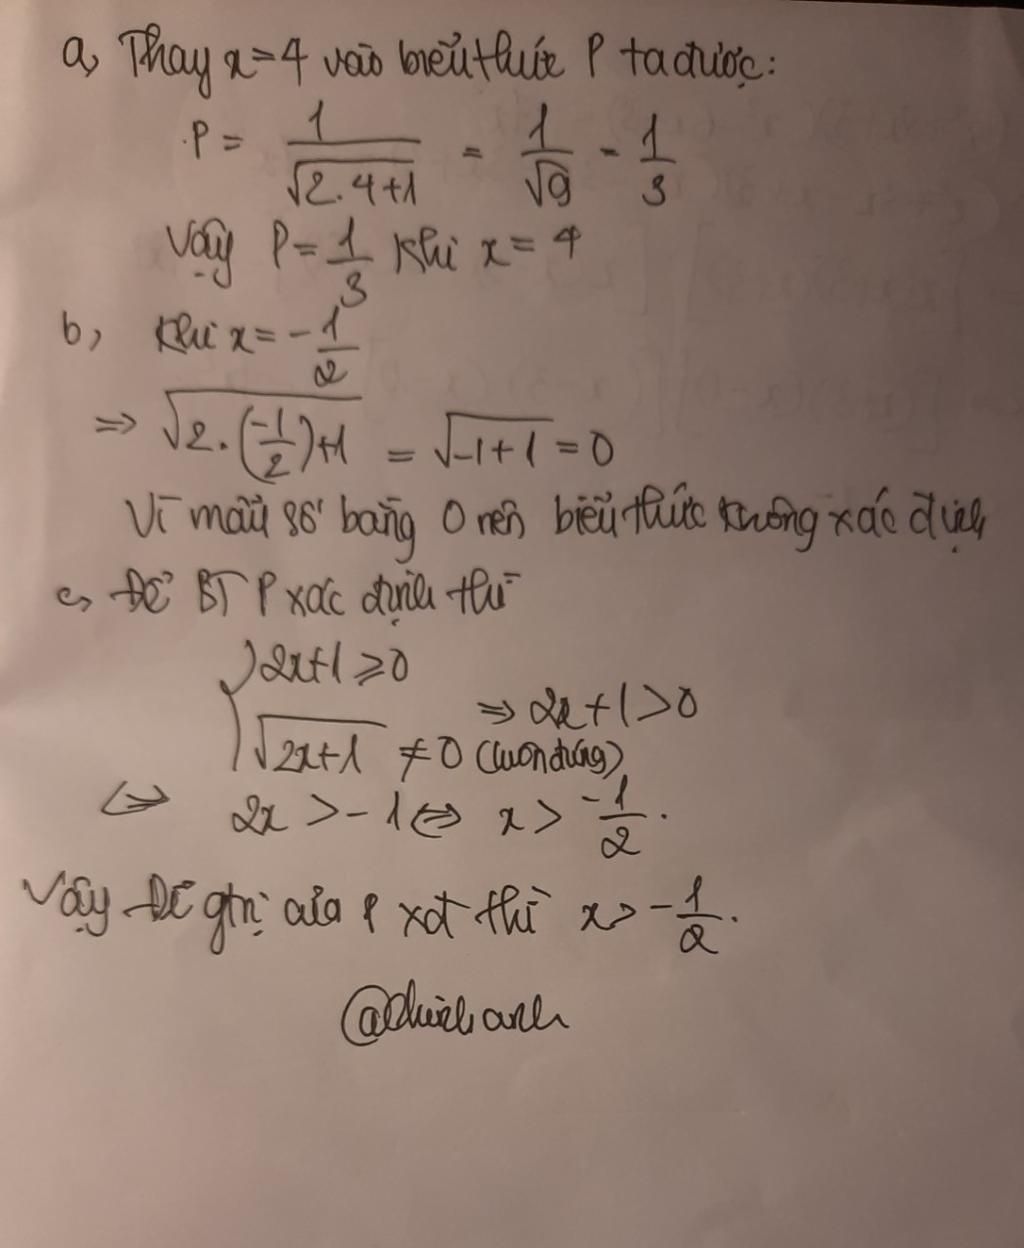 a, Thay x=4 vào biểu thức P ta được:
P = 1/√(2.4+1) = 1/√9 = 1/3
Vậy P = 1/3 khi x = 4
b, Khi x = -1/2
⇒ √(2.(-1/2)+1) = √(-1+1) = 0
Vì mẫu số bằng 0 nên biểu thức không xác định
c, Để BT P xác định thì
{ 2x+1 ≥ 0
√(2x+1) ≠ 0 (luôn đúng) ⇒ 2x+1 > 0
⇔ 2x > -1 ⇔ x > -1/2.
Vậy Để gtrị của P xđ thì x > -1/2.